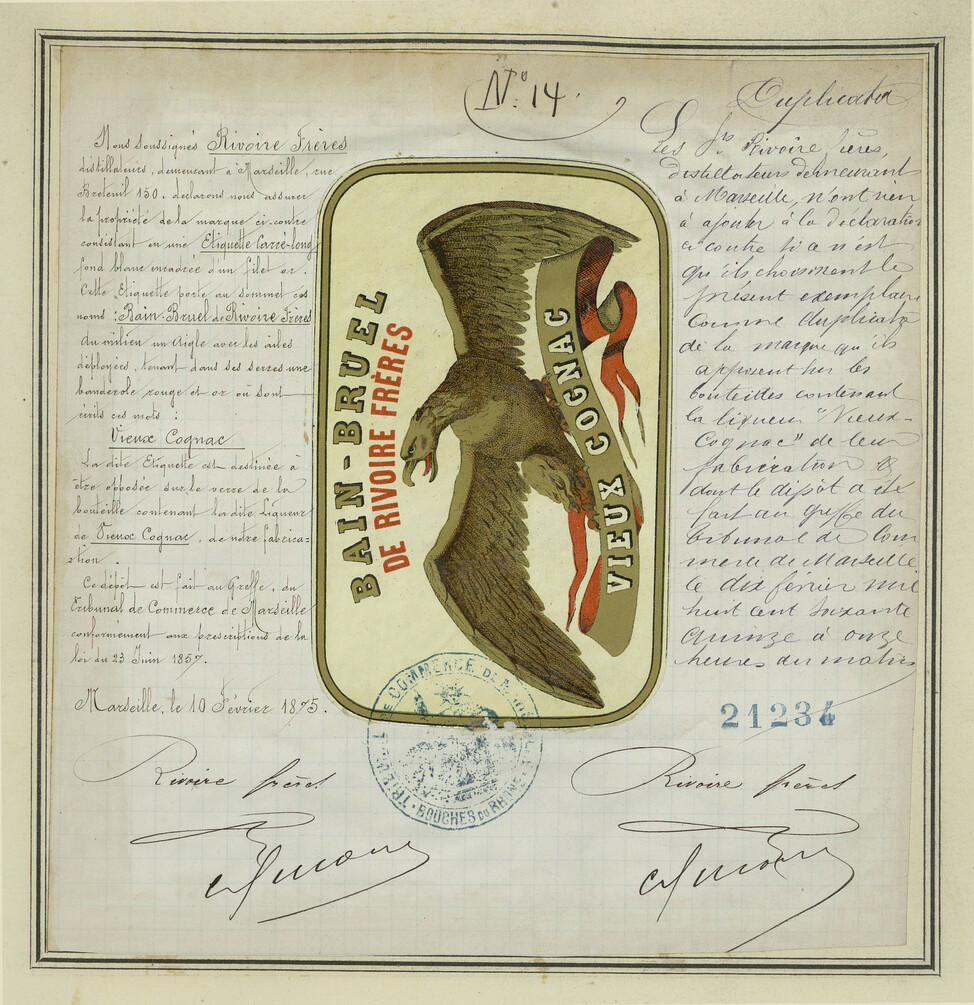 N° 14.
Nous soussignés Rivoire Frères
distillateurs, demeurant à Marseille, rue
Breteuil 150. déclarons nous assurer
la propriété de la marque ci-contre
consistant en une Etiquette Carré-long
fond blanc encadrée d'un filet or.
Cette Etiquette porte au sommet ces
noms : Bain-Bruel de Rivoire Frères
Au milieu un Aigle avec les ailes
déployées, tenant dans ses serres une
banderole rouge et or où sont
écrits ces mots :
Vieux Cognac
La dite Etiquette est destinée à
être apposée sur le verre de la
bouteille contenant la dite Liqueur
de Vieux Cognac, de notre fabrica-
tion.
Ce dépôt est fait au Greffe, du
Tribunal de Commerce de Marseille
conformément aux prescriptions de la
loi du 23 Juin 1857.
Marseille, le 10 Février 1875.
Rivoire frères
BAIN-BRUEL
DE RIVOIRE FRÈRES
VIEUX COGNAC
TRIBUNAL DE COMMERCE DE MARSEILLE
BOUCHES DU RHÔNE
Duplicata
Les Srs Rivoire frères,
distillateurs demeurant
à Marseille, n'ont rien
à ajouter à la declaration
ci contre si a n est
qu'ils choisissent le
présent exemplaire
Comme duplicata
de la marque qu ils
apposent sur les
bouteilles contenant
la liqueur "Vieux-
Cognac" de leur
fabrication &
dont le dépôt a été
fait au greffe du
tribunal de Com
merce de Marseille
le dix février mil
huit cent soixante
quinze à onze
heures du matin
21234
Rivoire frères